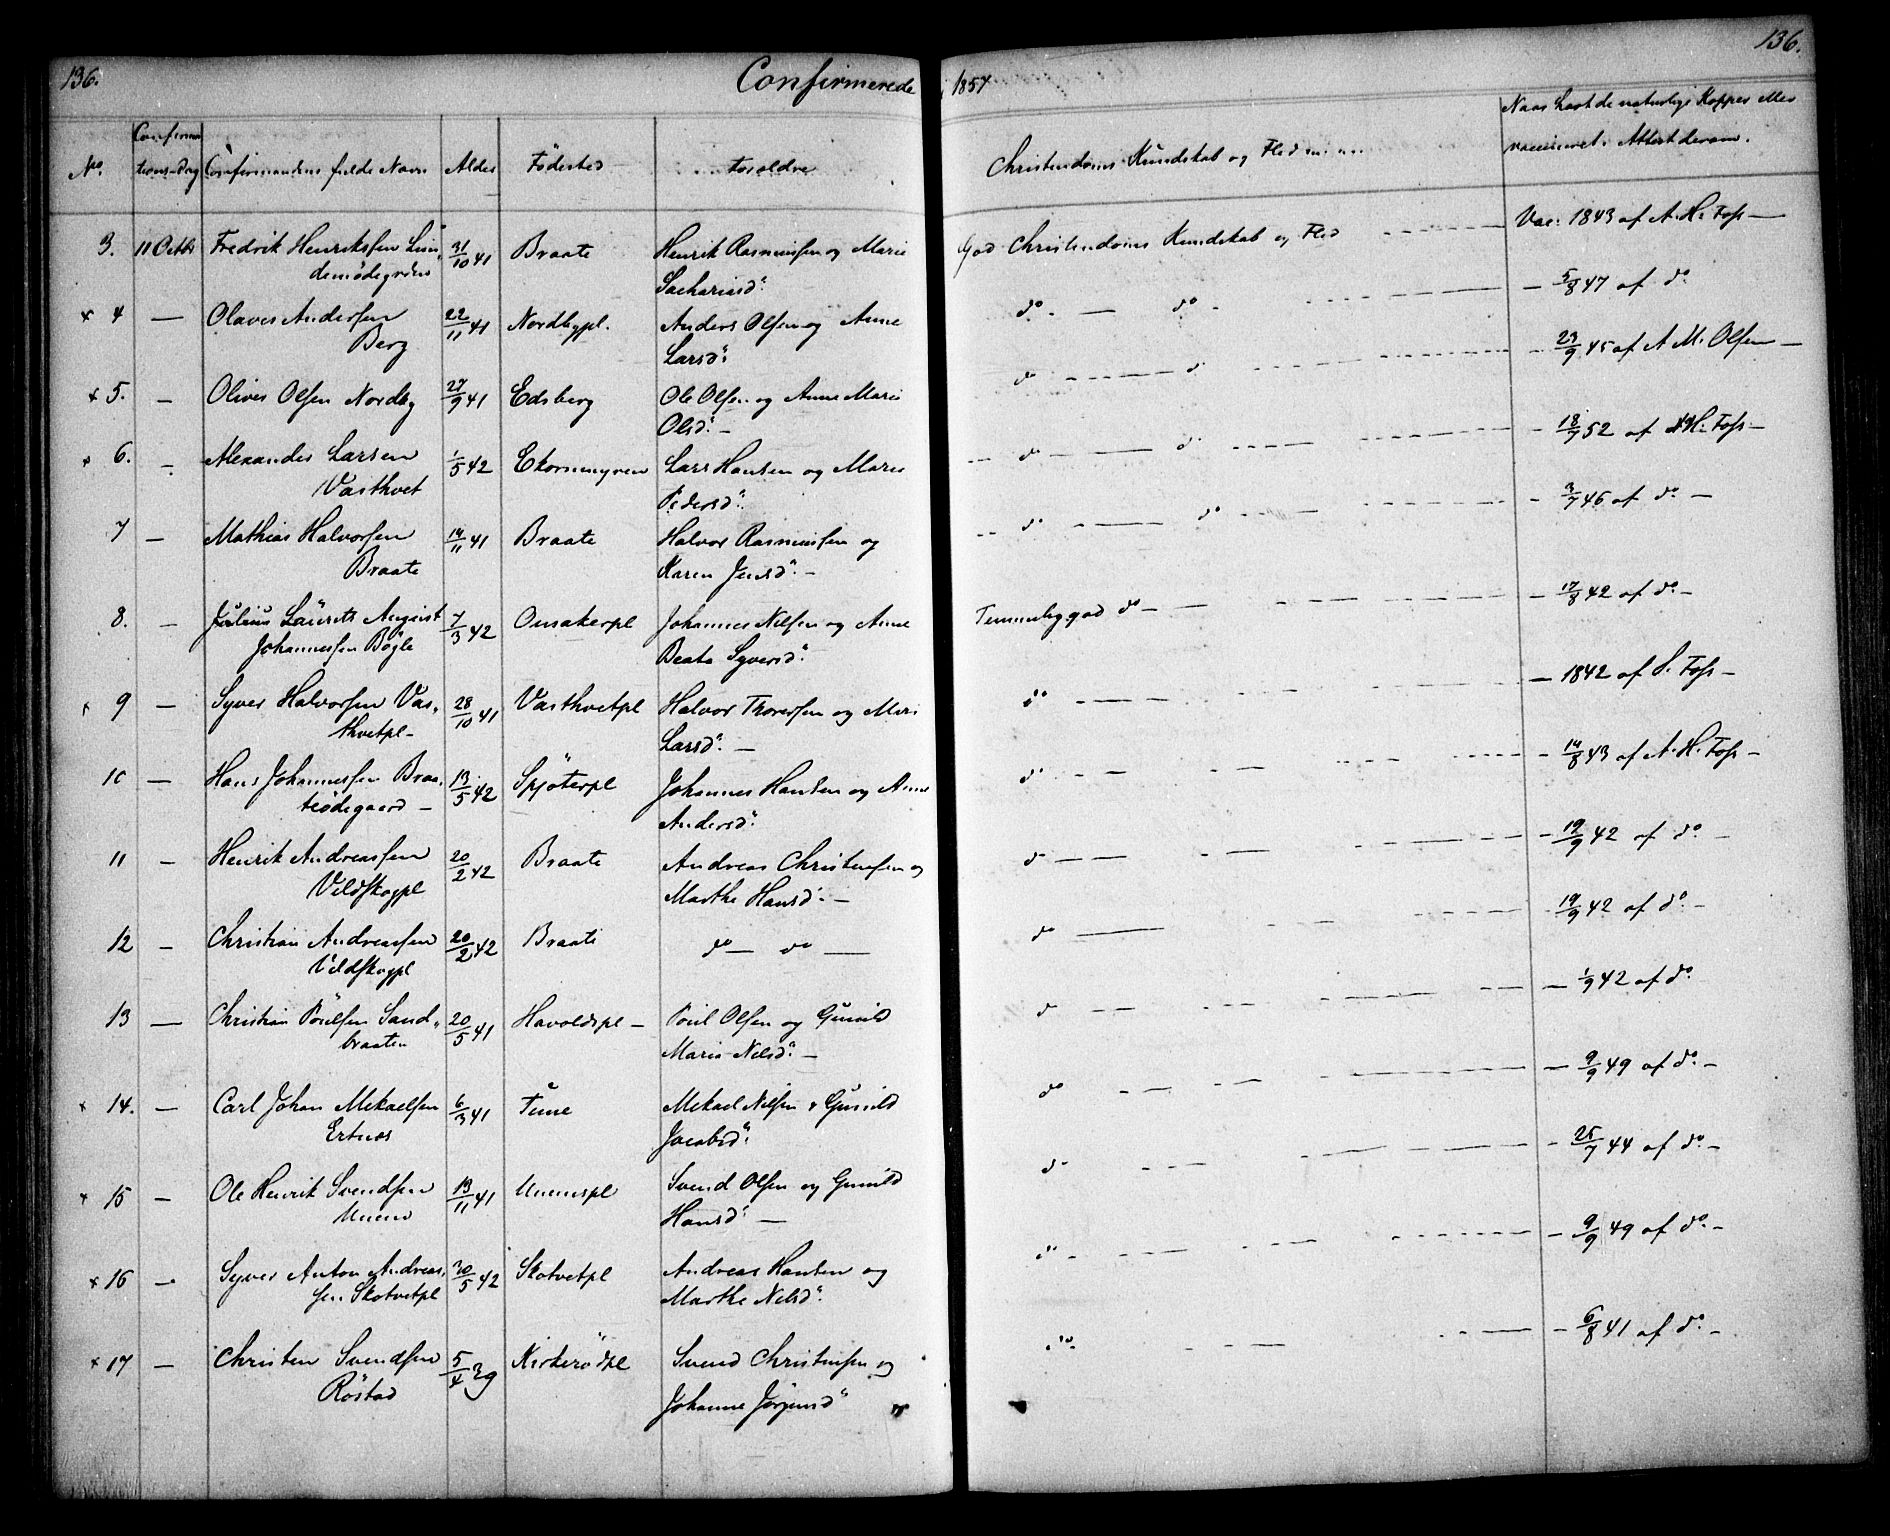 136.
Confirmerede
i 1857
136.
No.
Confirma
tions-Dag
Confirmandens fulde Navn
Alder
Fødested
Forældre
Christendoms Kundskab og Flid
Naar havt de naturlige Kopper eller
vaccineret. Attest derom.
3. 11 Octbr Fredrik Henriksen Lun„ 31/10 41 Braate Henrik Rasmussen og Marie God Christendoms Kundskab og Flid Vac: 1843 af A. H. Foss —
demødegrden Sachariasd:
x 4 — Olaves Andersen 22/11 41 Nordbypl. Anders Olsen og Anne do. — do. — 5/8 47 af do.
Berg Larsd:
x 5. — Oliver Olsen Nordby 27/9 41 Edsberg Ole Olsen og Anne Marie do — d — 23/9 45 af A M. Olsen —
Olsd: —
x 6. — Alexander Larsen 1/5 42 Ekornmyren Lars Hansen og Marie do — do — 18/7 52 af A H. Foss —
Vasthvet Pedersd:
7 — Mathias Halvorsen 14/11 41 Braate Halvor Rasmussen og do — do — 3/7 46 af do —
Braate Karen Jensd: —
8. — Julius Laurits August 7/3 42 Onsakerpl Johannes Nilsen og Anne Temmelig god do — 17/8 42 af do. —
Johannessen Bøgle Beate Syversd:
x 9 — Syver Halvorsen Vas„ 28/10 41 Vasthvetpl Halvor Thoresen og Mari do — 1842 af S. Foss —
thvetpl — Larsd: —
10 — Hans Johannessen Braa„ 13/5 42 Spjøterpl Johannes Hansen og Anne do — 14/8 43 af A. H. Foss —
teødegaard — Andersd:
11 — Henrik Andreassen 20/2 42 Braate Andreas Christensen og do — 19/9 42 af do —
Vildskogpl Marthe Hansd: —
12 — Christian Andreassen 20/2 42 Braate do — do — do — 19/9 42 af do —
Vildskogpl
13 — Christian Poulsen Sand„ 20/5 41 Havoldspl — Poul Olsen og Gunild do — 1/9 42 af do
braaten Marie Nelsd: —
x 14. — Carl Johan Mekaelsen 6/3 41 Tune Mekael Nilsen & Gunild do — 9/9 49 af do. —
Ertnes Jacobsd:
x 15 — Ole Henrik Svendsen 13/11 41 Munnspl Svend Olsen og Gunild do — 25/7 44 af do. —
Hansd: —
x 16 — Syver Anton Andreas„ 30/5 42 Skotvetpl Andreas Hansen og do — 9/9 49 af do. —
sen Skotvetpl Marthe Nelsd:
x 17 — Christen Svendsen 5/4 39 Kirkerødpl Svend Christensen og do. — 6/8 41 af do. —
Røstad Johanne Jørgensd: